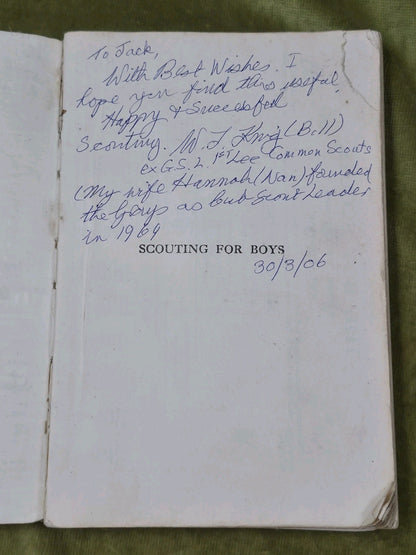 To Jack,
With Best Wishes. I
hope you find this useful.
Happy & Successful
Scouting. W. L. King (Bill)
ex G.S.L 1ST Lee Common Scouts
(My wife Hannah (Nan) founded
the Group as Cub Scout Leader
in 1964
SCOUTING FOR BOYS
30/3/06